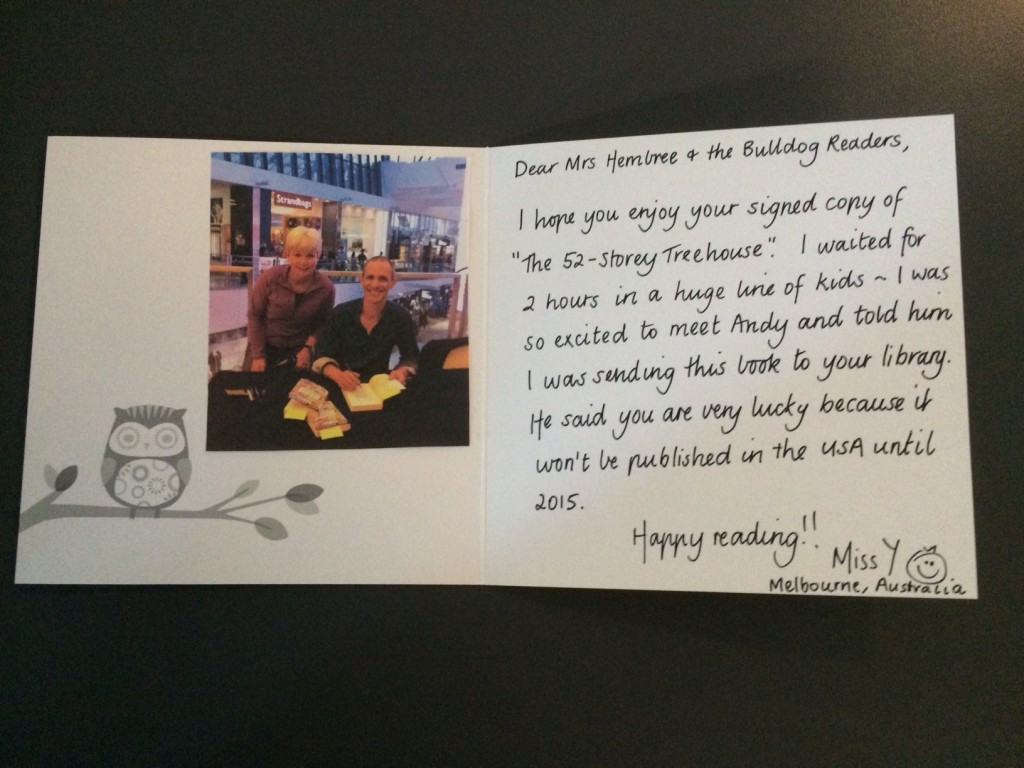 Strandbags
Dear Mrs Hembree & the Bulldog Readers,
I hope you enjoy your signed copy of
"The 52-Storey Treehouse". I waited for
2 hours in a huge line of kids ~ I was
so excited to meet Andy and told him
I was sending this book to your library.
He said you are very lucky because it
won't be published in the USA until
2015.
Happy reading!!
Miss Y
Melbourne, Australia